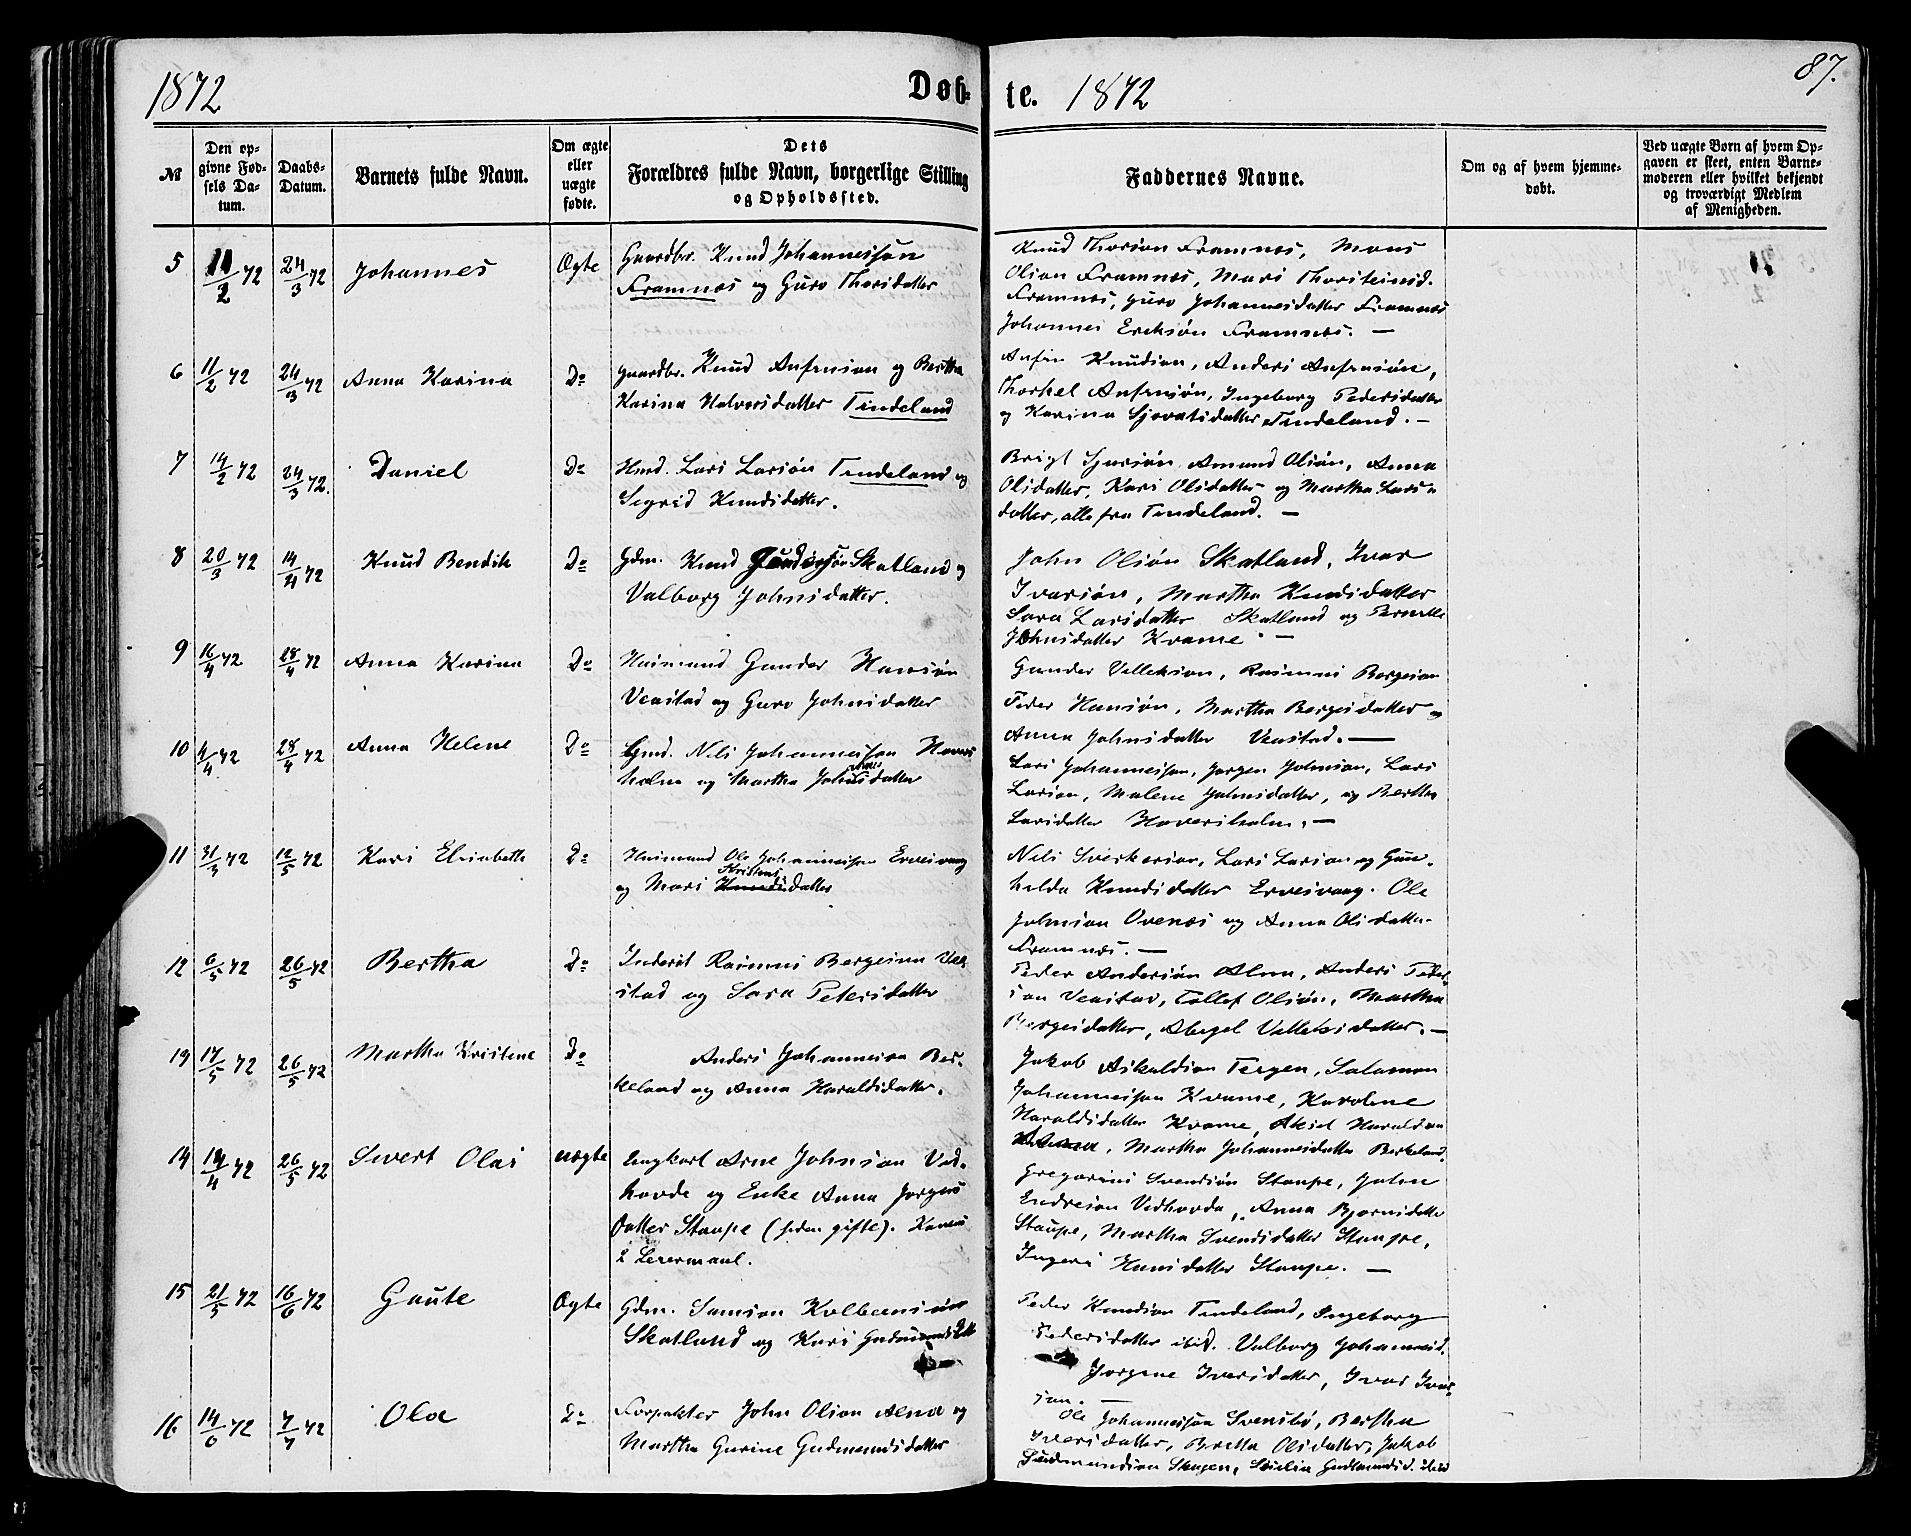 1872
Døb-
te.
1872
87.
№
Den op-
givne Fød-
sels Da-
tum.
Daabs-
Datum.
Barnets fulde Navn.
Om ægte
eller
uægte
fødte.
Dets
Forældres fulde Navn, borgerlige Stilling
og Opholdssted.
Faddernes Navne.
Om og af hvem hjemme-
døbt.
Ved uægte Børn af hvem Op-
gaven er skeet, enten Barne-
moderen eller hvilket bekjendt
og troværdigt Medlem
af Menigheden.
5 11/2 72 24/3 72 Johannes Ægte Gaardbr. Knud Johannesson
Framnæs og Guro Thorsdatter
Knud Thorson Framnæs, Mons
Olson Framnæs, Mari Thorsteinsd.
Framnæs, Guro Johannesdatter Framnæs
Johannes Eriksøn Framnæs. —
6 11/2 72 24/3 72 Anna Karina Do Gaardbr. Knud Anfinson og Bertha
Karina Halvorsdatter Tindeland
Anfin Knudson, Anders Anfinsøn,
Thorkel Anfinsøn, Ingeborg Pedersdatter
og Karina Sjovatsdatter Tindeland. —
7 14/2 72 24/3 72. Daniel Do Hmd. Lars Larsøn Tindeland og
Sigrid Knudsdatter.
Brigt Sjursøn, Amund Olsøn, Anna
Olsdatter, Kari Olsdatter og Martha Lars-
datter, alle fra Tindeland. —
8 20/3 72 14/4 72 Knud Bendik Do Gdm. Knud Skatland og
Valborg Johnsdatter.
John Olsøn Skatland, Ivar
Ivarsøn, Martha Knudsdatter
Sara Larsdatter Skatland og Pernille
Johnsdatter Kvame. —
9 16/4 72 28/4 72 Anna Karina Do Huusmand Gunder Hansøn
Veastad og Guro Johnsdatter
Gunder Velleksøn, Rasmus Borgeson
Peder Hansøn, Martha Borgesdatter og
Anna Johnsdatter Veastad. —
10 4/4 72 28/4 72 Anna Helene Do Gmd. Nils Johannesson Hovers
holm og Martha Johnsdatter
Lars Johannesson, Jørgen Johnson, Lars
Larson, Malene Johnsdatter, og Bertha
Larsdatter Hoversholm. —
11 31/3 72 12/5 72 Kari Elisabeth Do Huusmand Ole Johannesson Ervesvaag
og Mari Kristensdatter
Nils Sverkerson, Lars Larson og Gun-
hilda Knudsdatter Ervesvaag. Ole
Johnson Ovenæs og Anna Olsdatter
Framnæs. —
12 6/5 72 26/5 72 Bertha Do Inderst Rasmus Bergeson Vea
stad og Sara Petersdatter
Peder Andersøn Alna, Anders Peder-
son Veastad, Tollef Olsøn, Martha
Bergesdatter, Abegel Velleksdatter. —
19 17/5 72 26/5 72 Martha Kristine Do Anders Johanneson Ber-
keland og Anna Haraldsdatter.
Jakob Askeldson Tergen, Salomon
Johannesson Kvame, Karoline
Haraldsdatter Kvame, Aksel Haraldson
Martha Johannesdatter Berkeland.
14 14/4 72 26/5 72 Sivert Olai uægte Ungkarl Arne Johnson Ved-
hovde og Enke Anna Jørgens
datter Staupe (siden gifte). Hennes
2 Leiermaal.
Gregorius Svendsøn Staupe, John
Endreson Vedhovda, Anna Bjornsdatter
Staupe, Martha Svendsdatter Staupe,
Ingeri Hansdatter Staupe. —
15 21/5 72 16/6 72 Gaute Ægte Gdm. Samson Kolbeensøn
Skatland og Kari Gudmundsdatt
Peder Knudson Tindeland, Ingeborg
Pedersdatter ibid. Valborg Johannesd.
Jorgene Iversdatter, Ivar Ivar-
son. —
16 14/6 72 7/7 72 Ola Do Forpakter John Olson Alna og
Martha Gurine Gudmundsdatter
Ole Johannesson Svensbø, Bertha
Iversdatter, Britta Olsdatter, Jakob
Gudmundson Skogen, Gudmundsd. ibid